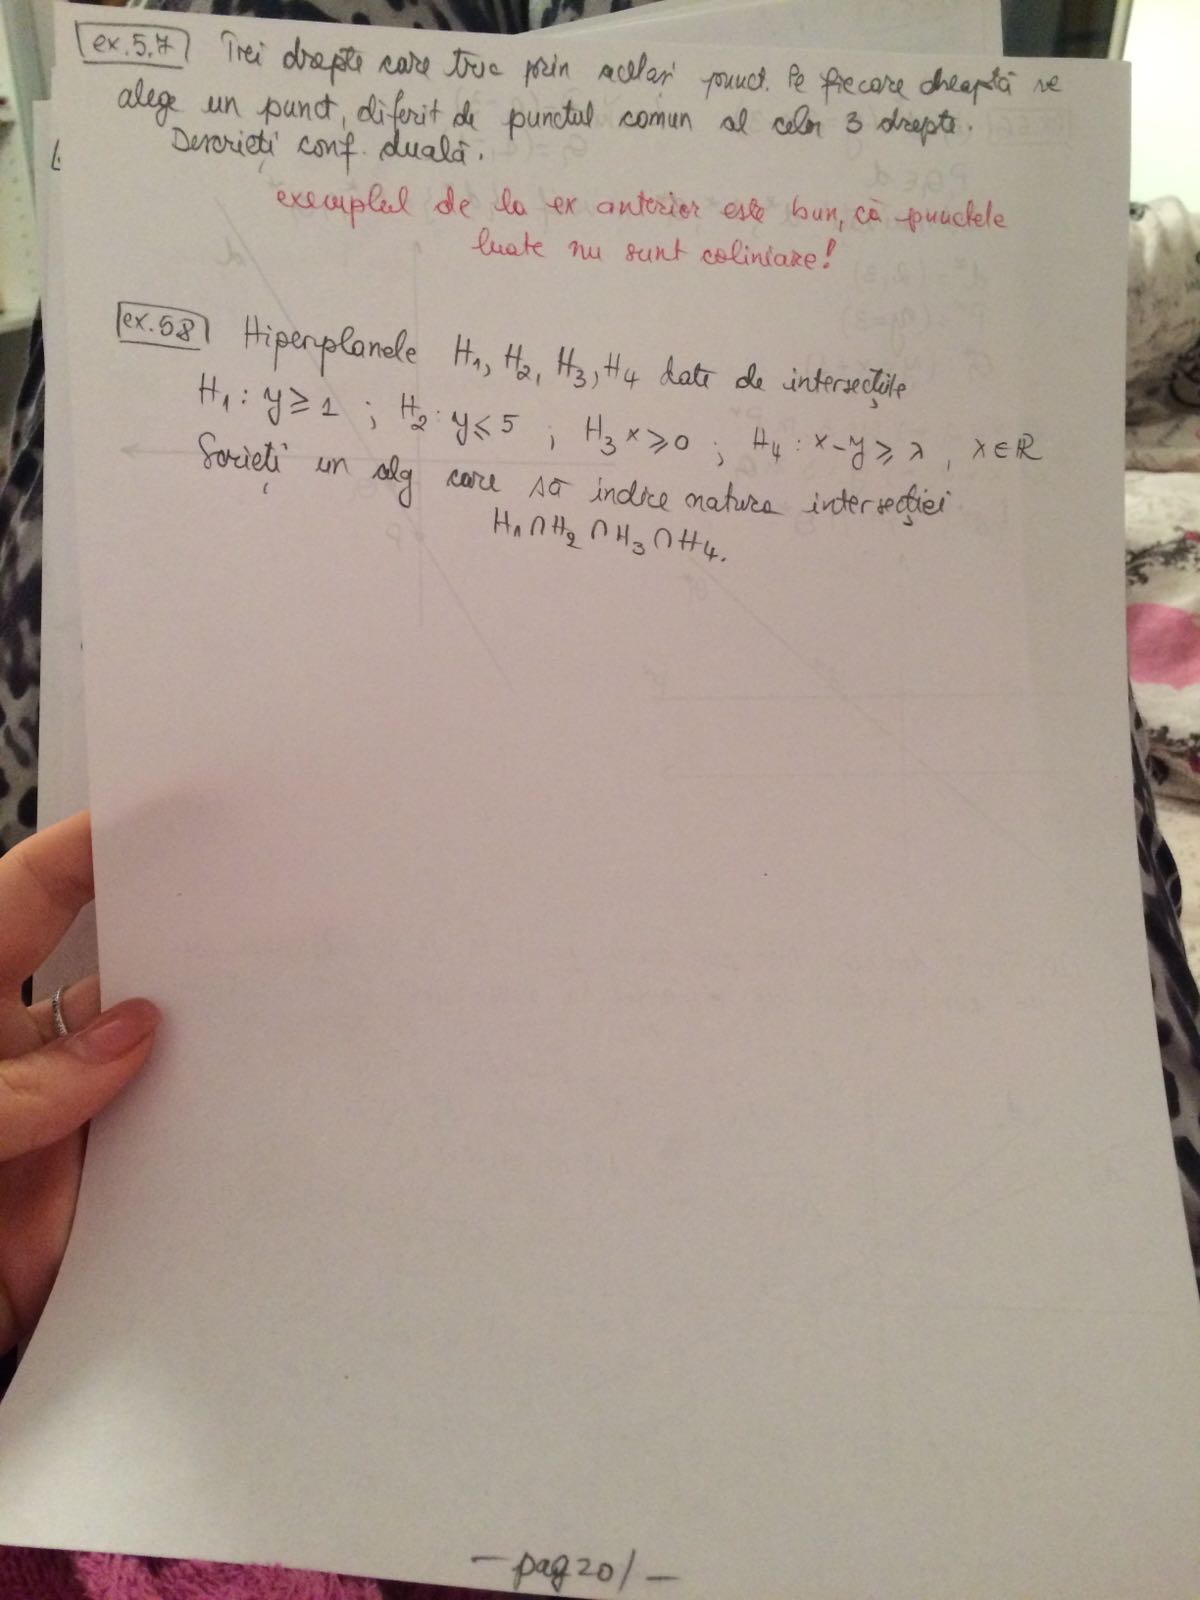 ex. 5.7 Trei drepte care trec prin același punct. Pe fiecare dreaptă se
alege un punct, diferit de punctul comun al celor 3 drepte.
Descrieți conf. duală.
exemplul de la ex anterior este bun, că punctele
luate nu sunt coliniare!
ex. 5.8 Hiperplanele H1, H2, H3, H4 date de intersecțiile
H1: y ≥ 1 ; H2: y ≤ 5 ; H3 x ≥ 0 ; H4: x-y ≥ λ, λ ∈ ℝ
Scrieți un alg care să indice natura intersecției
H1 ∩ H2 ∩ H3 ∩ H4.
— pag 20/ —